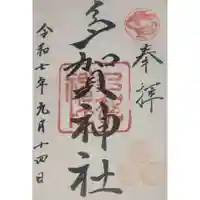 奉拝
多賀神社
令和七年元月十四日